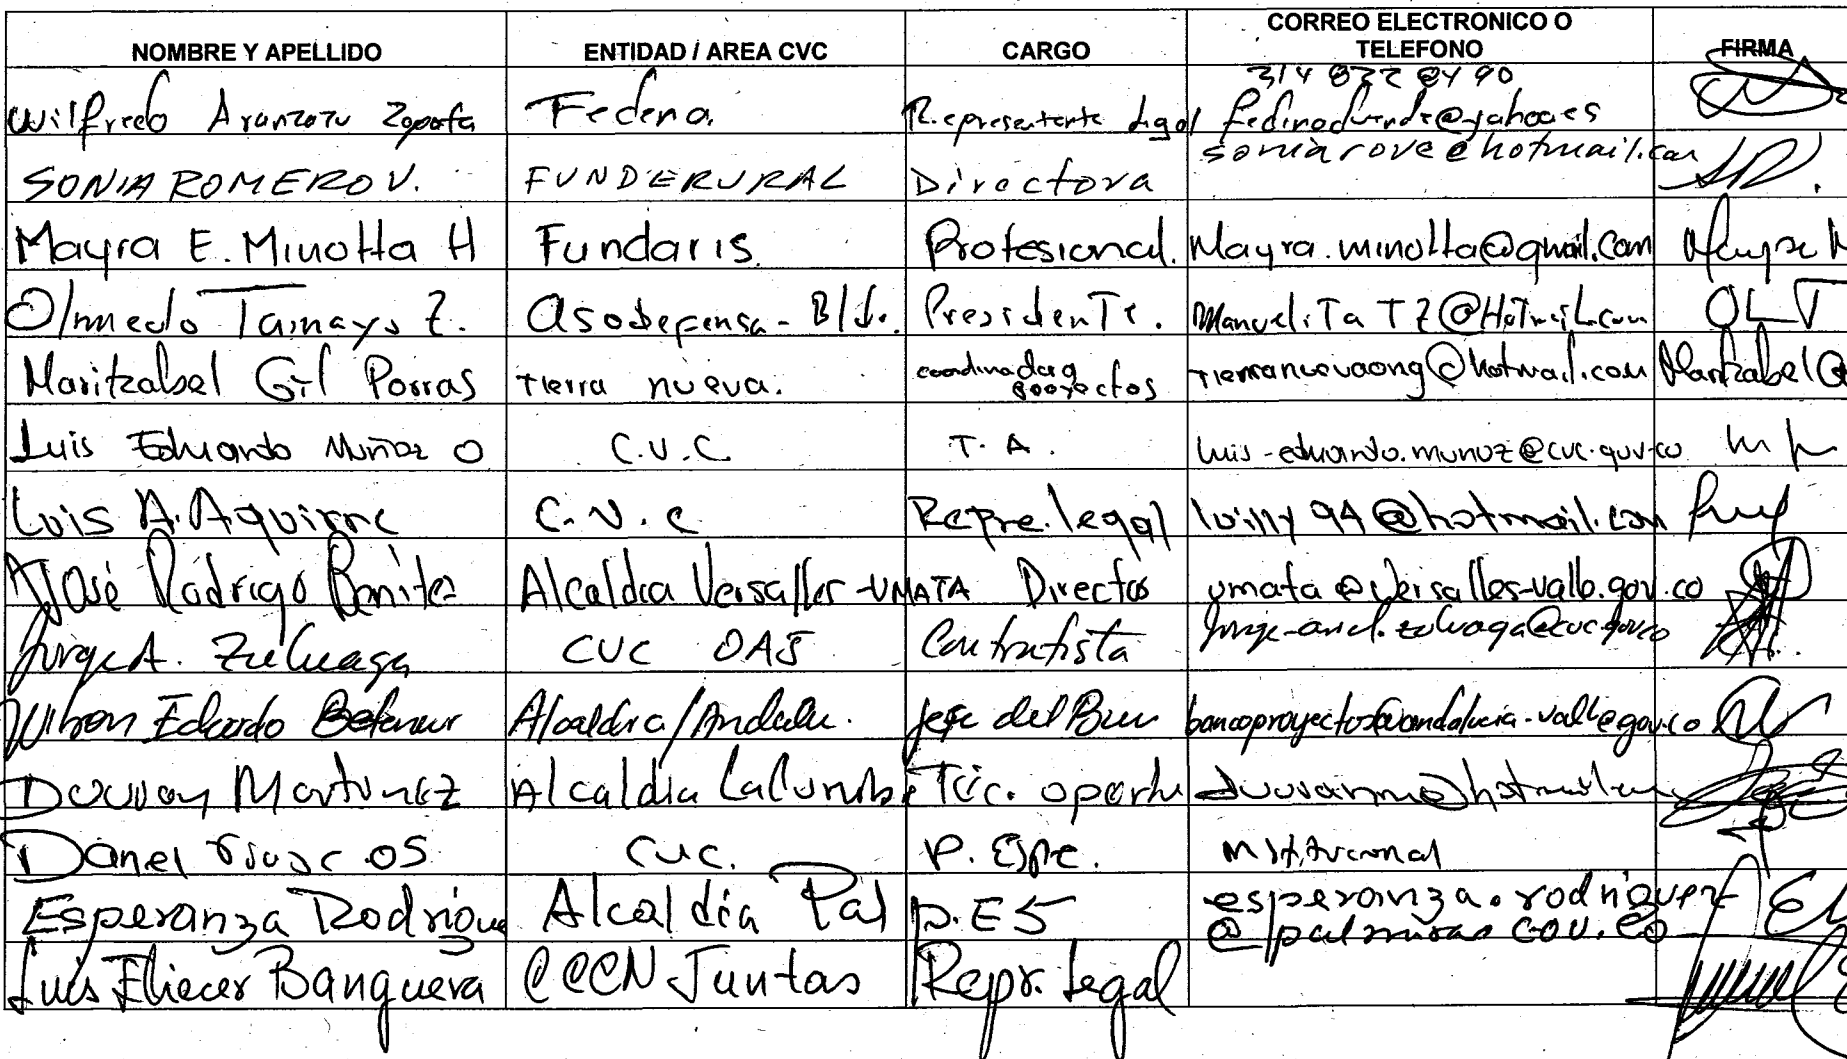 NOMBRE Y APELLIDO ENTIDAD / AREA CVC CARGO CORREO ELECTRONICO O TELEFONO FIRMA
Wilfredo Aranzazu Zapata Fedena. Representante Legal
SONIA ROMERO V. FUNDERURAL Directora soniarove@hotmail.com
Mayra E. Minotta H Fundaris. Profesional. Mayra.minotta@gmail.com
Olmedo Tamayo Z. Asodefensa - B/f. Presidente. ManuelitaTZ@Hotmail.com OLT
Maritzabel Gil Porras Tierra nueva. coordinadora proyectos tierranuevaong@hotmail.com Maritzabel G
Luis Eduardo Muñoz O C.V.C T.A. luis-eduardo.munoz@cvc.gov.co
Luis A. Aguirre C.V.C Repre. legal luilly94@hotmail.com
José Rodrigo Benitez Alcaldia Versalles - UMATA Director umata@versalles-valle.gov.co
Jorge A. Zuluaga CVC OAJ Contratista
Wilson Eduardo Betancur Alcaldia/Andalu. Jefe del bancoproyectos@andalucia-valle.gov.co
Duvan Martinez Alcaldia LaCumbre Tec.
CVC. P. Espe. Institucional
Esperanza Rodrigue Alcaldía Pal P.E5 esperanza.rodriguez
Luis Eliecer Banguera CCCN Juntas Repr. Legal